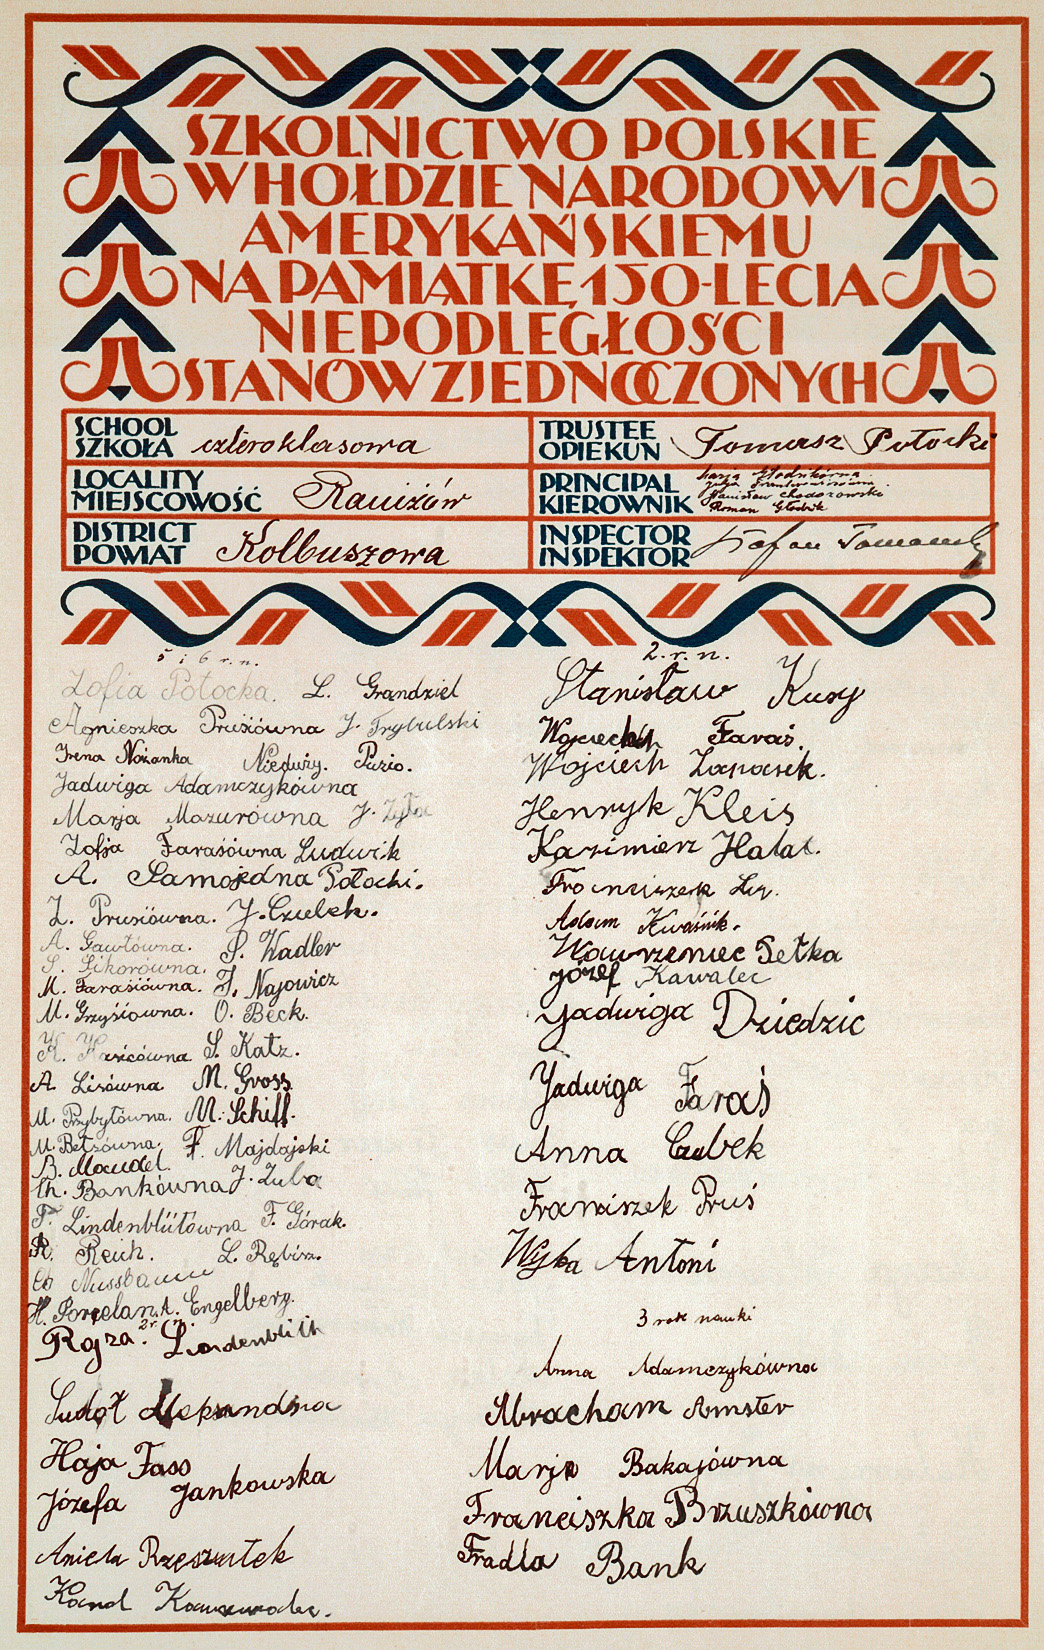 SZKOLNICTWO POLSKIE
W HOŁDZIE NARODOWI
AMERYKAŃSKIEMU
NA PAMIĄTKĘ 150-LECIA
NIEPODLEGŁOŚCI
STANÓW ZJEDNOCZONYCH
SCHOOL
SZKOŁA czteroklasowa
LOCALITY
MIEJSCOWOŚĆ Raniżów
DISTRICT
POWIAT Kolbuszowa
TRUSTEE
OPIEKUN Tomasz Potocki
PRINCIPAL
KIEROWNIK
Stanisław Chodorowski
Roman Głodnik
INSPECTOR
INSPEKTOR
5 i 6 r. n.
Zofia Potocka. L. Grandziel
Agnieszka Prusiówna J. Trybulski
Irena Nozanka Nieduży. Puzio.
Jadwiga Adamczykówna
Marja Mazurówna J. Zyła
Zofja Farasiówna Ludwik
A. Samojedna Potocki.
Z. Prusiówna. J. Czubek.
A. Gawłówna. S. Wadler
S. Sikorówna.
M. Farasiówna. J. Najowicz
M. Grzyśiowna. O. Beck.
K. S. Katz.
A. Lisówna M. Gross
M. Przybyłówna. M. Schiff.
M. Betzówna. F. Majdajski
B. Mandel.
Ch. Bankówna J. Zuba
T. Lindenblütówna F. Górak.
R. Reich. L. Rębisz.
Ch Nussbaum
H. Porcelan. A. Engelberg.
2 r. n.
Rojza Lindenblith
Sudoł Aleksandra
Haja Fass
Józefa Jankowska
Aniela Rzeszutek
Karol
2. r. n.
Stanisław Kusy
Wojciech Faraś.
Wojciech Zapasek.
Henryk Kleis
Kazimierz Halat.
Franciszek
Adam Kwaśnik.
Wawrzeniec Setka
Józef Kawalec
Jadwiga Dziedzic
Jadwiga Faraś
Anna Czubek
Franciszek Pruś
Wyka Antoni
3 rok nauki
Anna Adamczykówna
Abracham Amster
Marja Bakajówna
Franciszka Brzuszkówna
Fradla Bank